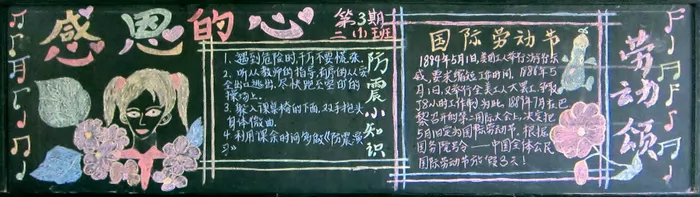 感恩的心
第3期
二(1)班
防震小知识
1、遇到危险时,千万不要慌张。
2、听从教师的指导,有序的从安
全出口逃出,尽快跑至空旷的
操场上。
3、躲入课桌椅的下面,双手抱头
身体微曲。
4、利用课余时间多做《防震演
习》
国际劳动节
1884年5月1日,美国工人举行游行示
威,要求缩短工作时间,1886年5
月1日,又举行全美工人大罢工,争取
了8小时工作制。为此,1889年7月在巴
黎召开的第二国际大会上,决定把
5月1日定为国际劳动节。根据
国务院号令——中国全体公民
国际劳动节放假3天!
劳动颂